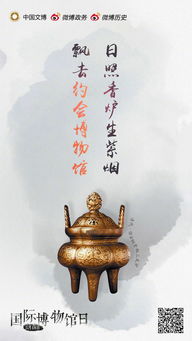 中国文博 微博政务 微博历史
日照香炉生紫烟
飘去约会博物馆
国际博物馆日